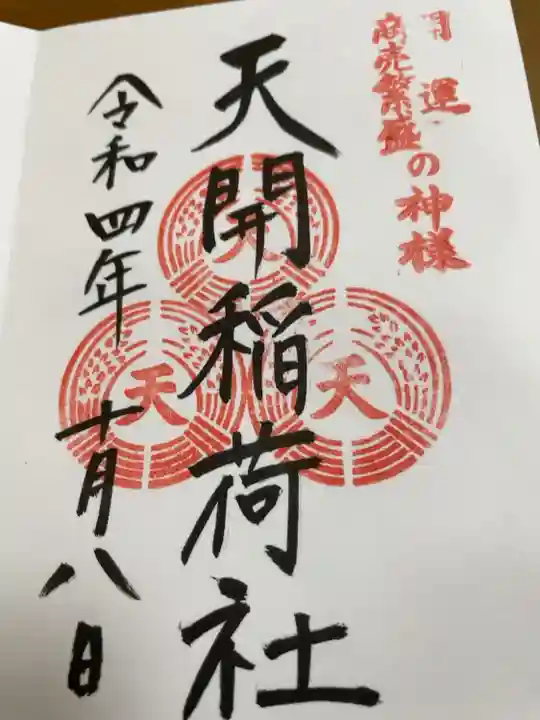 開運
商売繁盛の神様
天開稲荷社
令和四年
十月八日
天
天
天